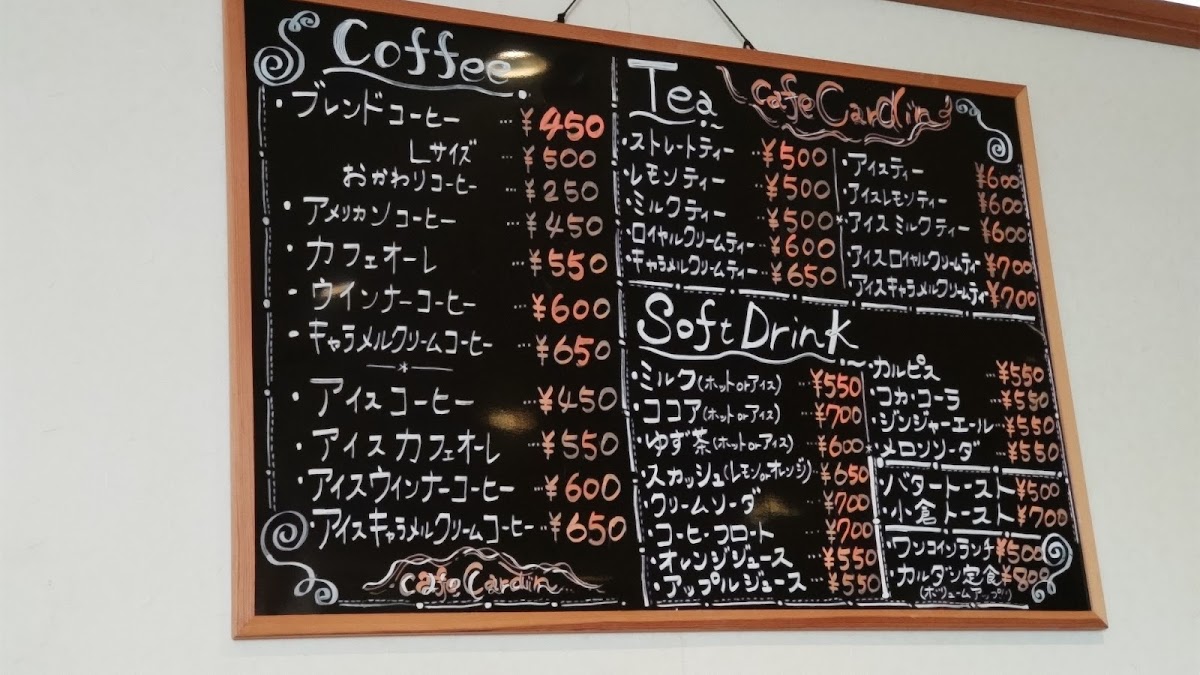 Coffee
・ブレンドコーヒー … ¥450
Lサイズ … ¥500
おかわりコーヒー … ¥250
・アメリカンコーヒー … ¥450
・カフェオーレ … ¥550
・ウインナーコーヒー ¥600
・キャラメルクリームコーヒー … ¥650
*
・アイスコーヒー … ¥450
・アイスカフェオーレ … ¥550
・アイスウインナーコーヒー … ¥600
・アイスキャラメルクリームコーヒー … ¥650
cafe Cardin
Tea
cafe Cardin
・ストレートティー … ¥500
・レモンティー … ¥500
・ミルクティー … ¥500
・ロイヤルクリームティー … ¥600
・キャラメルクリームティー … ¥650
・アイスティー ¥600
・アイスレモンティー ¥600
・アイスミルクティー ¥600
・アイスロイヤルクリームティ ¥700
・アイスキャラメルクリームティ ¥700
Soft Drink
・ミルク(ホットorアイス) … ¥550
・ココア(ホットorアイス) … ¥700
・ゆず茶(ホットorアイス) … ¥600
・スカッシュ(レモンorオレンジ) … ¥650
・クリームソーダ … ¥700
・コーヒーフロート … ¥700
・オレンジジュース … ¥550
・アップルジュース … ¥550
・カルピス … ¥550
・コカ・コーラ … ¥550
・ジンジャーエール … ¥550
・メロンソーダ … ¥550
・バタートースト ¥500
・小倉トースト ¥700
・ワンコインランチ ¥500
・カルダン定食 ¥800
(ボリュームアップ!!)